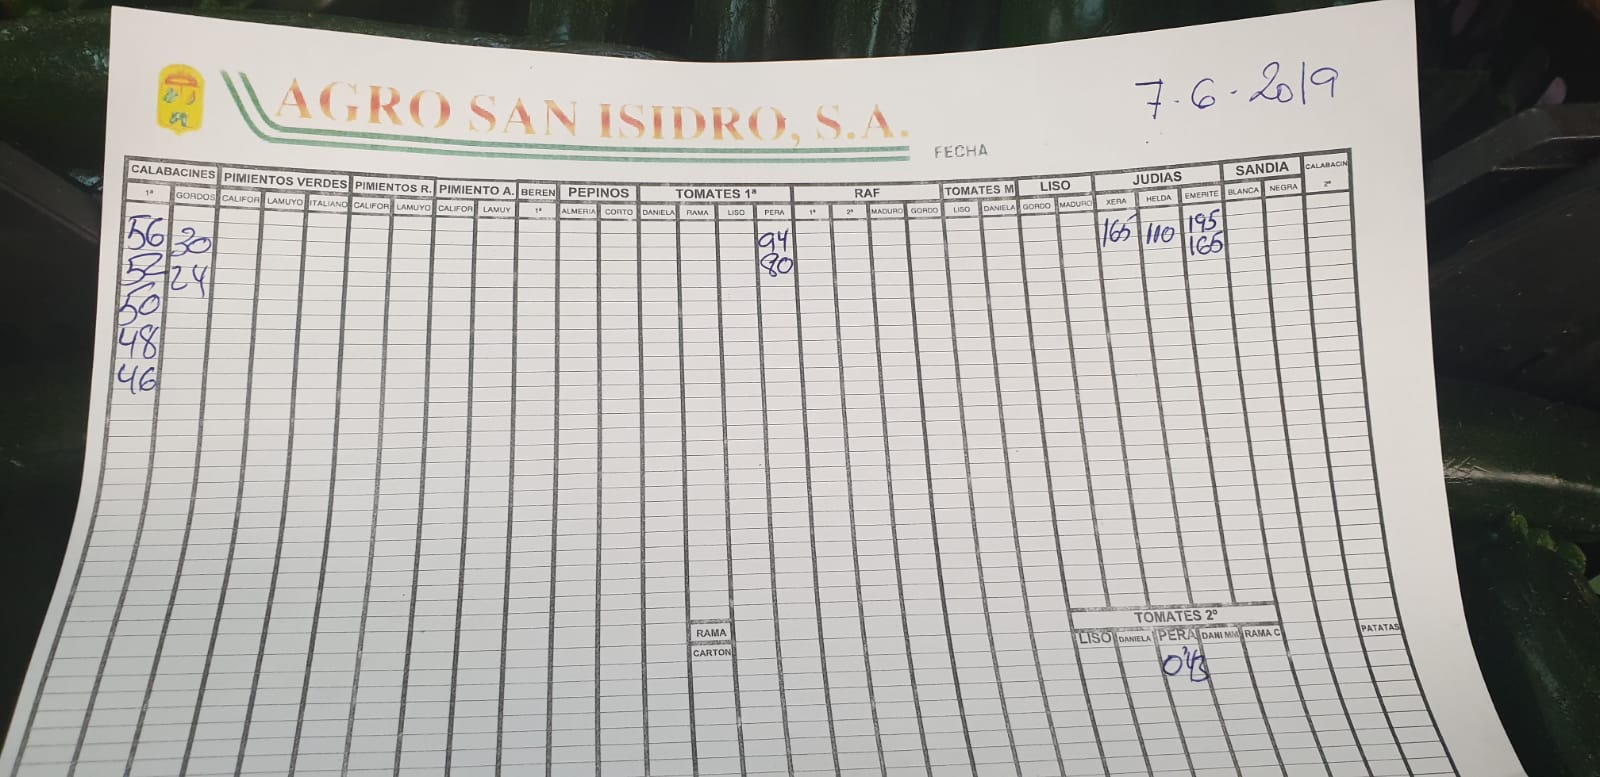 AGRO SAN ISIDRO, S.A.
FECHA 7-6-2019
CALABACINES PIMIENTOS VERDES PIMIENTOS R. PIMIENTO A. BEREN PEPINOS TOMATES 1ª RAF TOMATES M LISO JUDIAS SANDIA CALABACIN
1ª GORDOS CALIFOR LAMUYO ITALIANO CALIFOR LAMUYO CALIFOR LAMUY 1ª ALMERIA CORTO DANIELA RAMA LISO PERA 1ª 2ª MADURO GORDO LISO DANIELA GORDO MADURO XERA HELDA EMERITE BLANCA NEGRA 2ª
56 30 94 165 110 195
52 24 80 165
50
48
46
TOMATES 2º
RAMA LISO DANIELA PERA DANI MM RAMA C PATATAS
CARTON 0'43